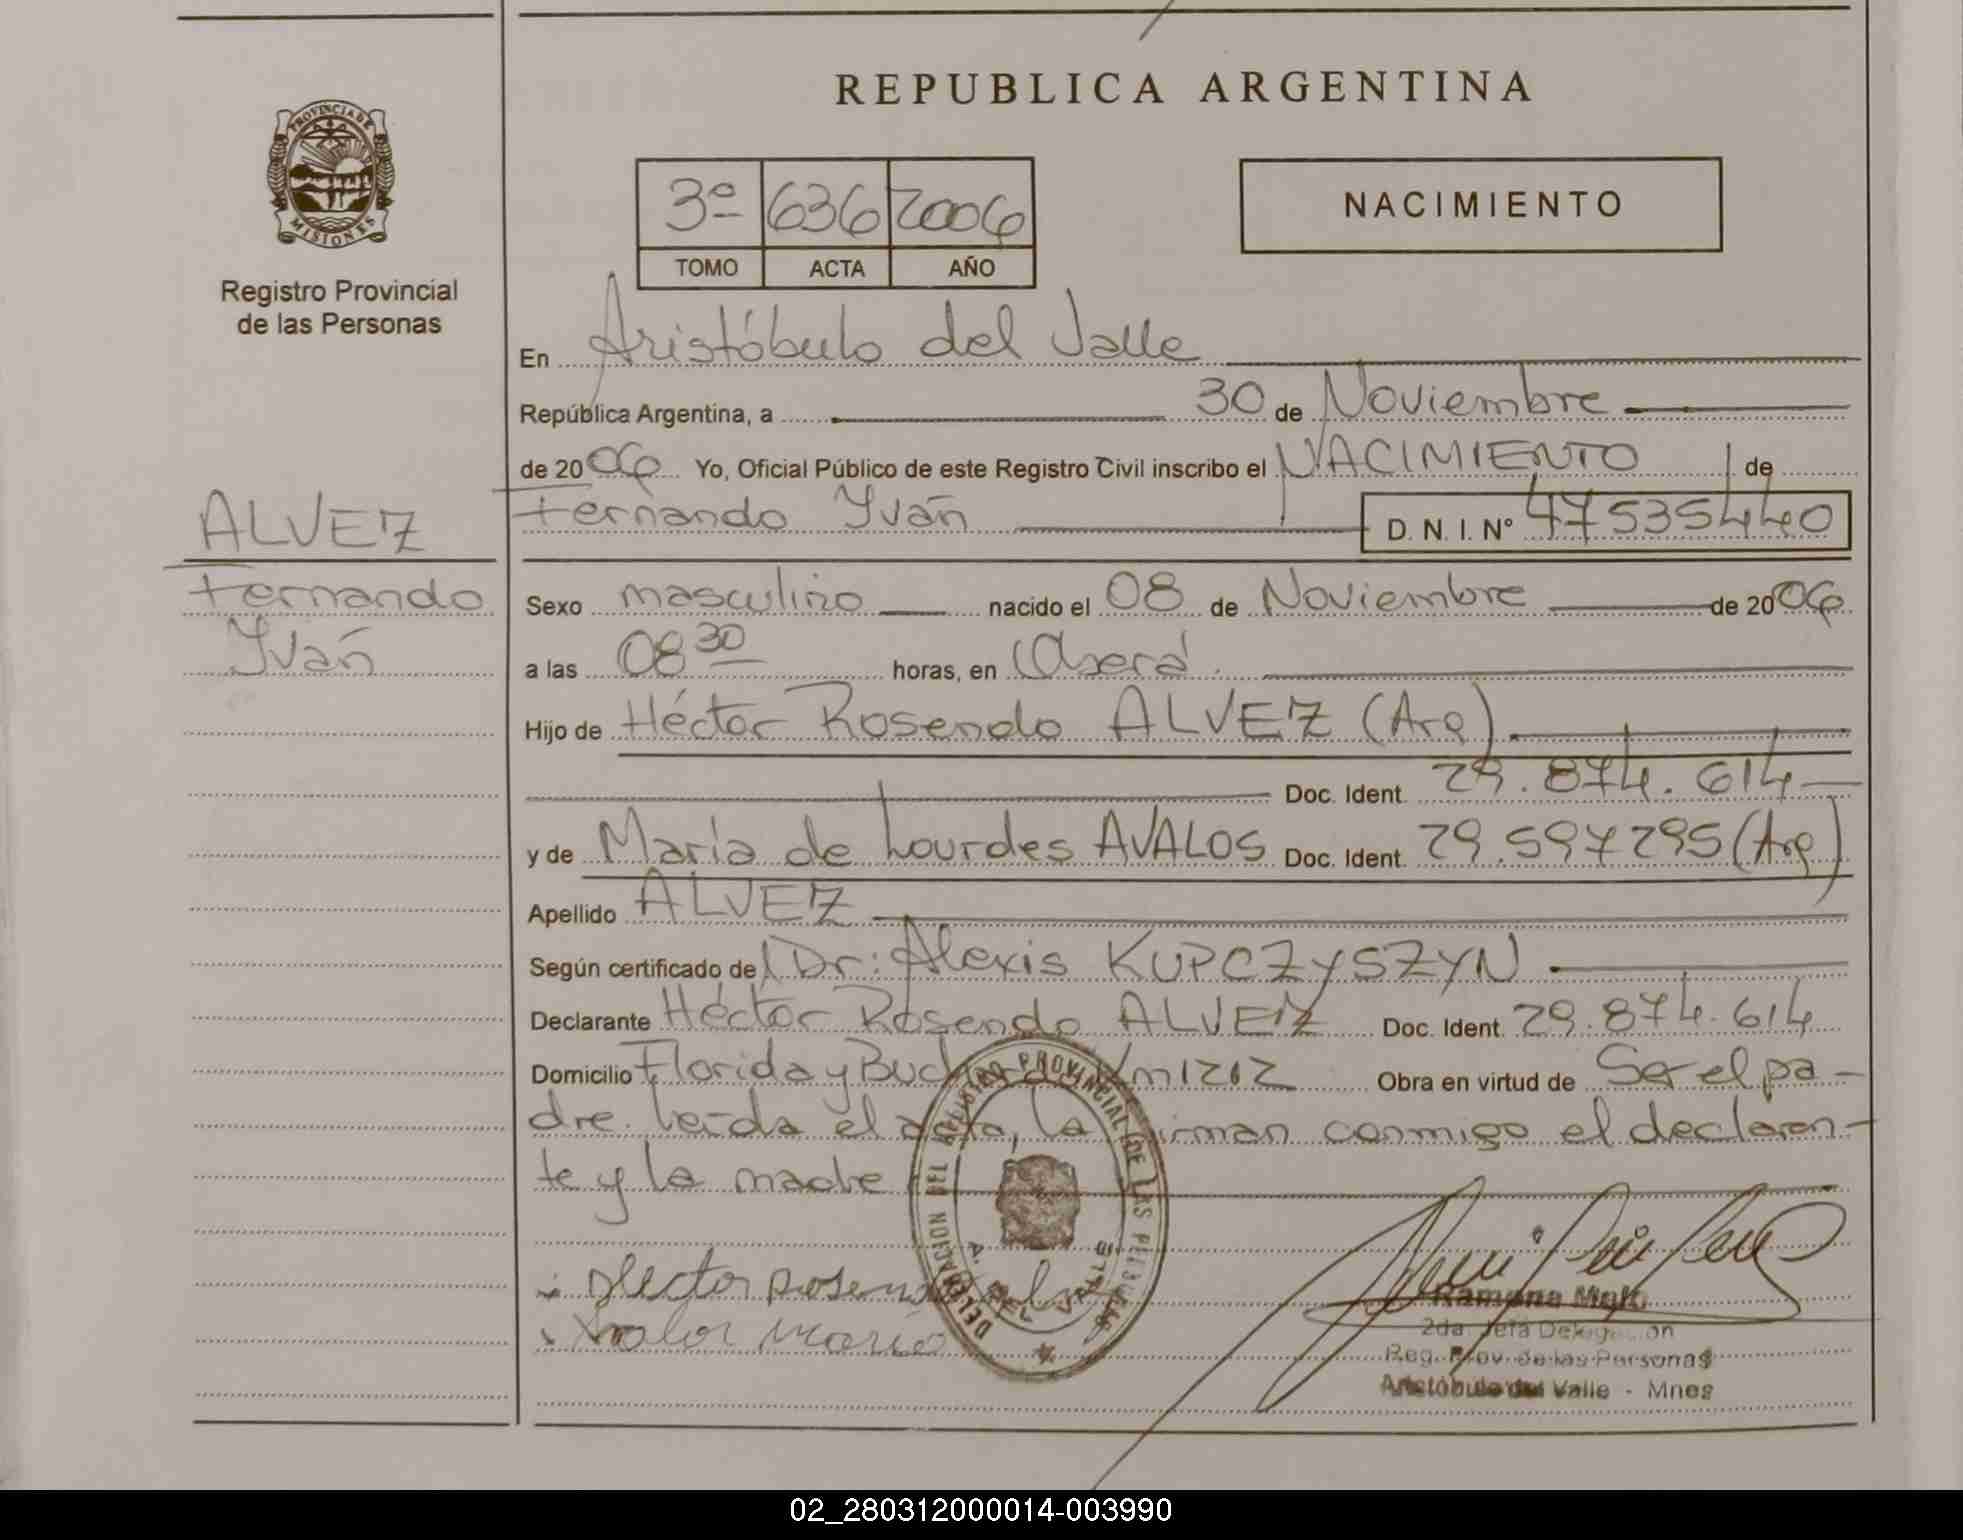 REPUBLICA ARGENTINA
PROVINCIA DE
MISIONES
Registro Provincial
de las Personas
3º 636 2006
TOMO ACTA AÑO
NACIMIENTO
En Aristóbulo del Valle
República Argentina, a 30 de Noviembre
de 2006 Yo, Oficial Público de este Registro Civil inscribo el NACIMIENTO de
ALVEZ
Fernando Yván D. N. I. Nº 47535440
Fernando
Yván
Sexo masculino nacido el 08 de Noviembre de 2006
a las 08 30 horas, en Oberá.
Hijo de Héctor Rosendo ALVEZ (Arg)
Doc. Ident. 29.874.614
y de María de Lourdes AVALOS Doc. Ident. 29.597295 (Arg)
Apellido ALVEZ
Según certificado de Dr: Alexis KUPCZYSZYN
Declarante Héctor Rosendo ALVEZ Doc. Ident. 29.874.614
Domicilio Florida y Km1212 Obra en virtud de Ser el pa-
dre. Leída el acta, la firman conmigo el declaran-
te y la madre
DELEGACION DEL REGISTRO PROVINCIAL DE LAS PERSONAS
A. DEL VALLE
Hector Rosendo
Maria
Ramona
2da. Jefa Delegación
Reg. Prov. de las Personas
Aristóbulo del Valle - Mnes
02_280312000014-003990